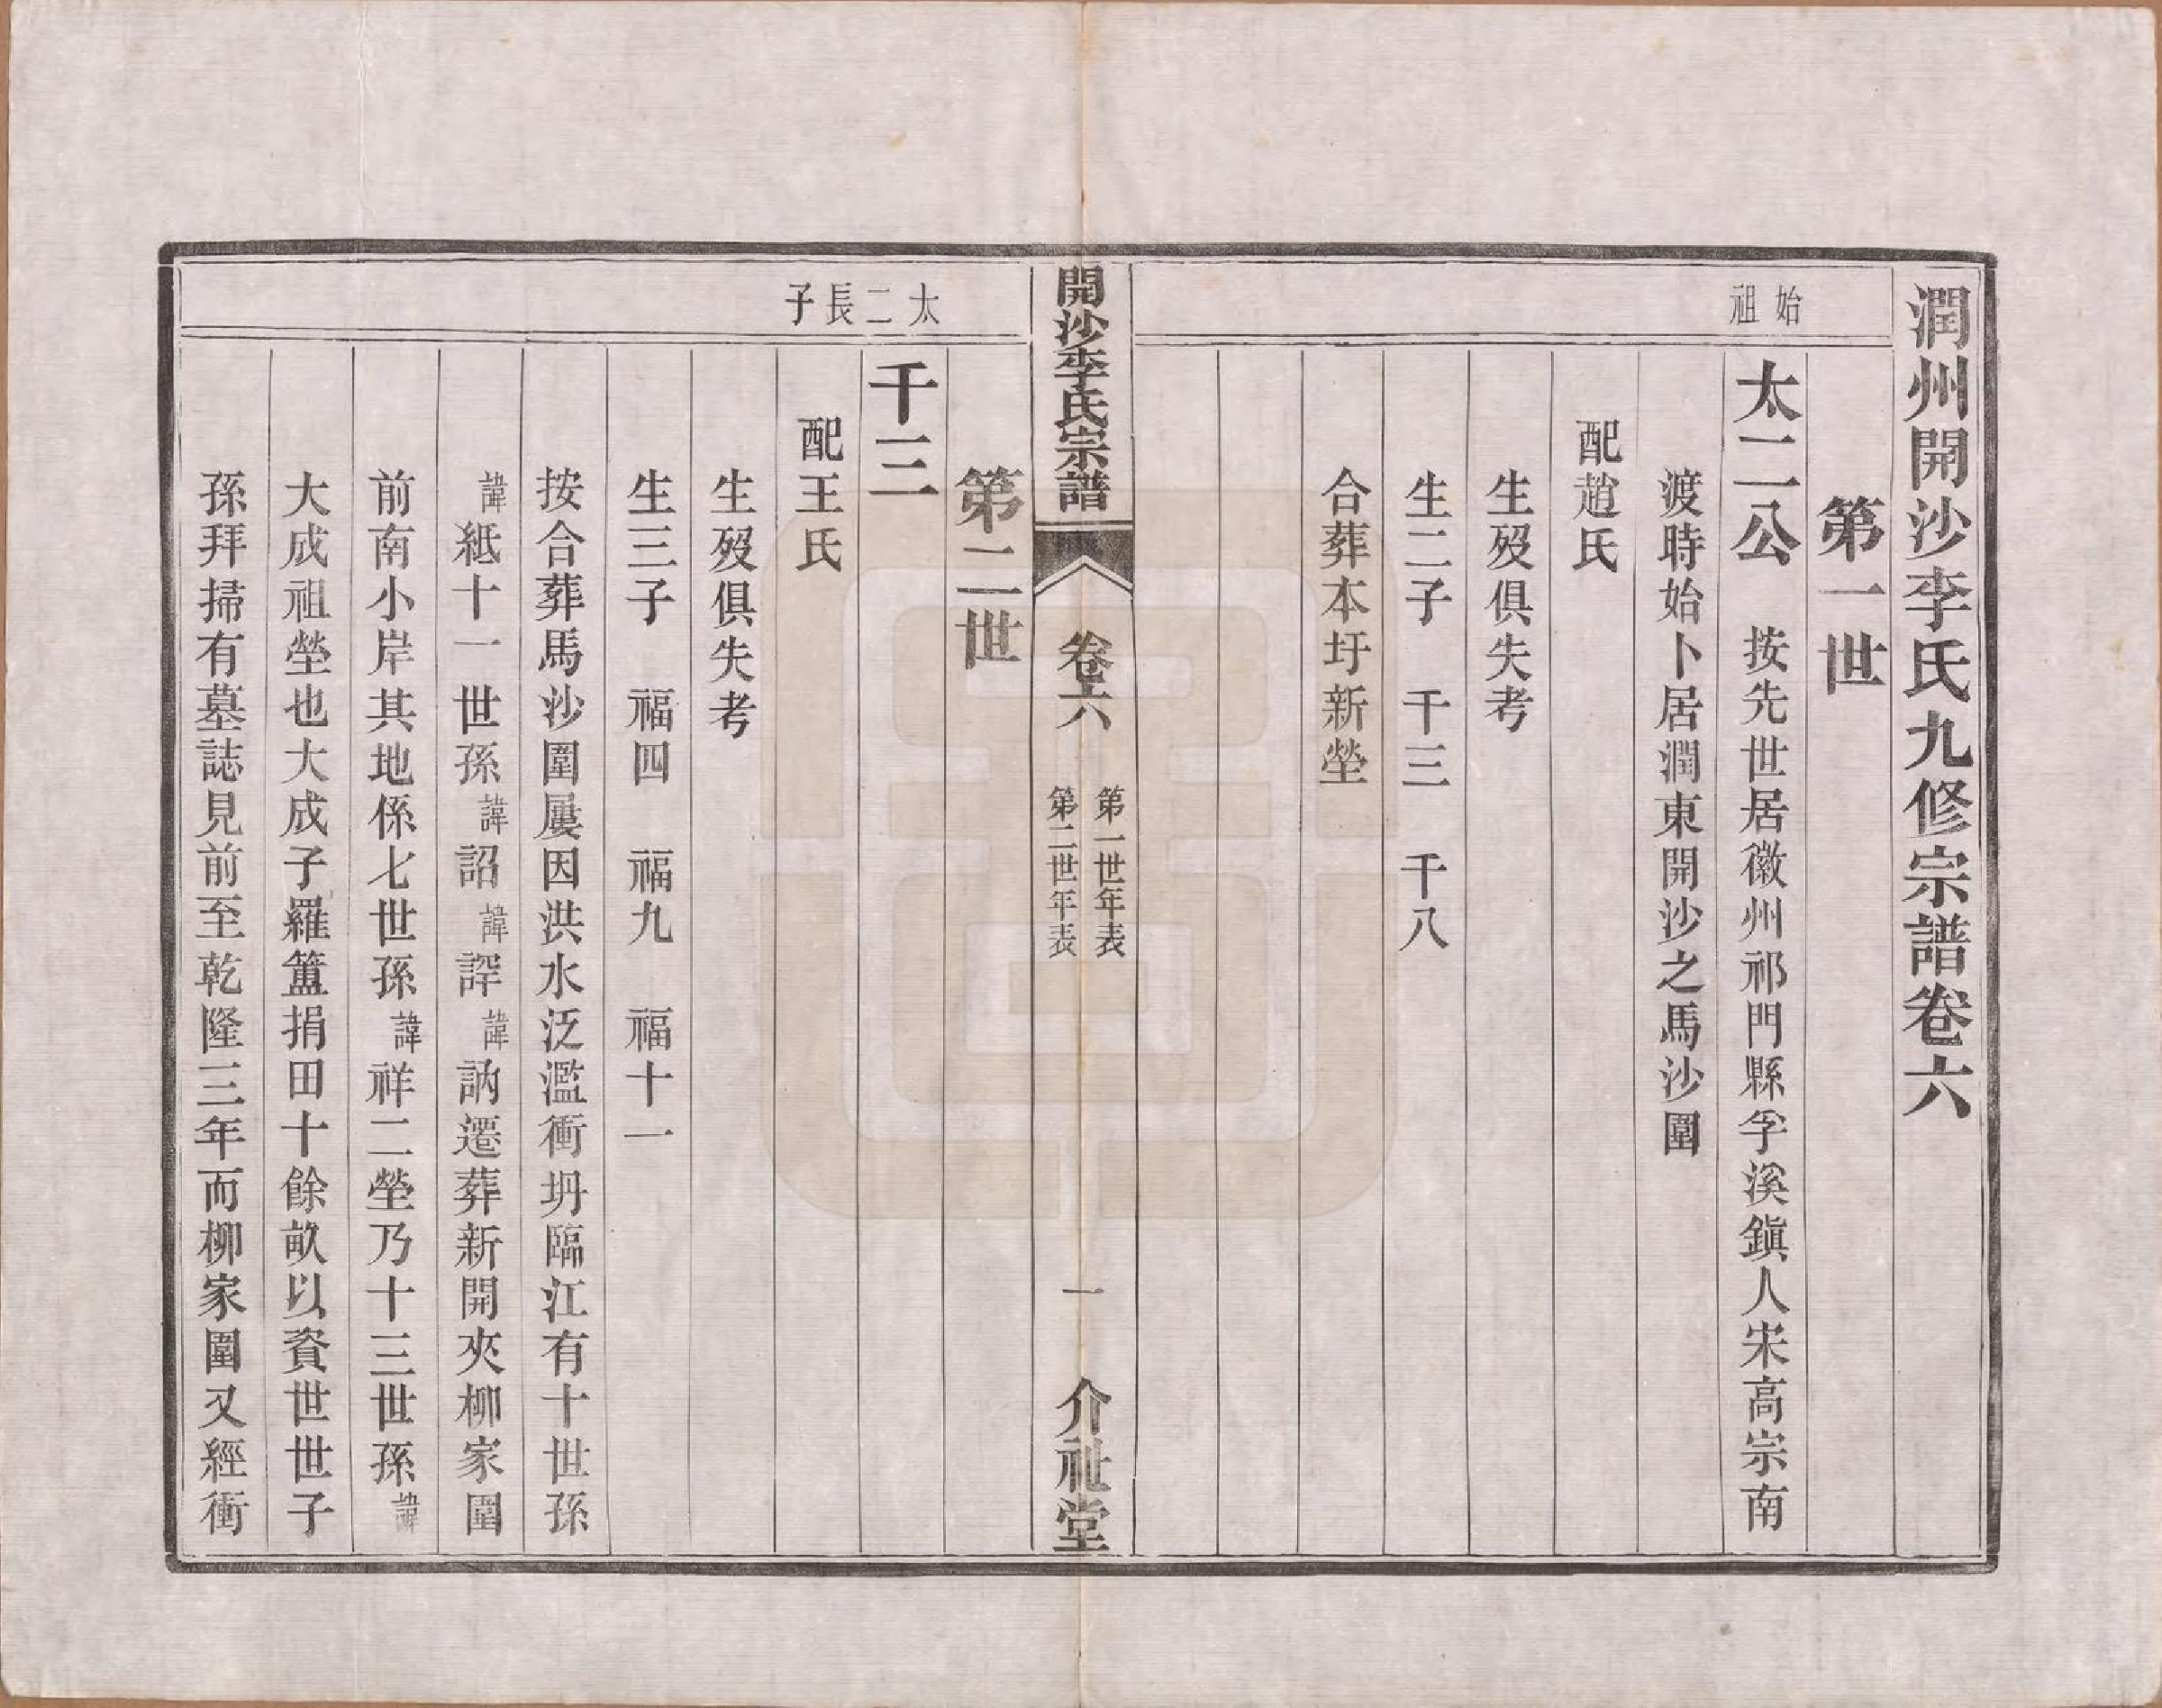 潤州開沙李氏九修宗譜卷六
第一世
始祖
太二公　按先世居徽州祁門縣孚溪鎭人宋高宗南
渡時始卜居潤東開沙之馬沙圍
配趙氏
生歿俱失考
生二子　千三　千八
合葬本圩新塋
開沙李氏宗譜　卷六　第一世年表　第二世年表　一　介祉堂
第二世
太二長子
千三
配王氏
生歿俱失考
生三子　福四　福九　福十一
按合葬馬沙圍屢因洪水泛濫衝坍臨江有十世孫
諱紙十一世孫諱詔諱諄諱訥遷葬新開夾柳家圍
前南小岸其地係七世孫諱祥二塋乃十三世孫諱
大成祖塋也大成子羅簠捐田十餘畝以資世世子
孫拜掃有墓誌見前至乾隆三年而柳家圍又經衝